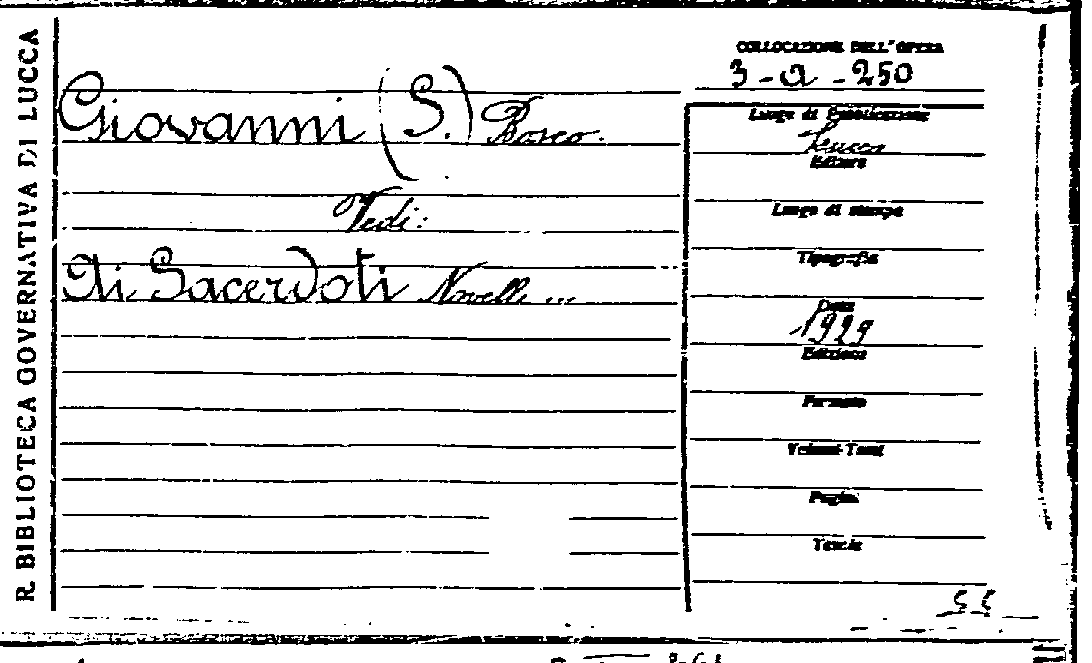 R. BIBLIOTECA GOVERNATIVA DI LUCCA
Giovanni (S.) Bosco.
Vedi:
Ai Sacerdoti Novelli ...
COLLOCAZIONE DELL'OPERA
3-a-250
Luogo di Pubblicazione
Lucca
Editore
Luogo di stampa
Tipografia
Data
1929
Edizione
Formato
Volumi-Tomi
Pagine
Tavole